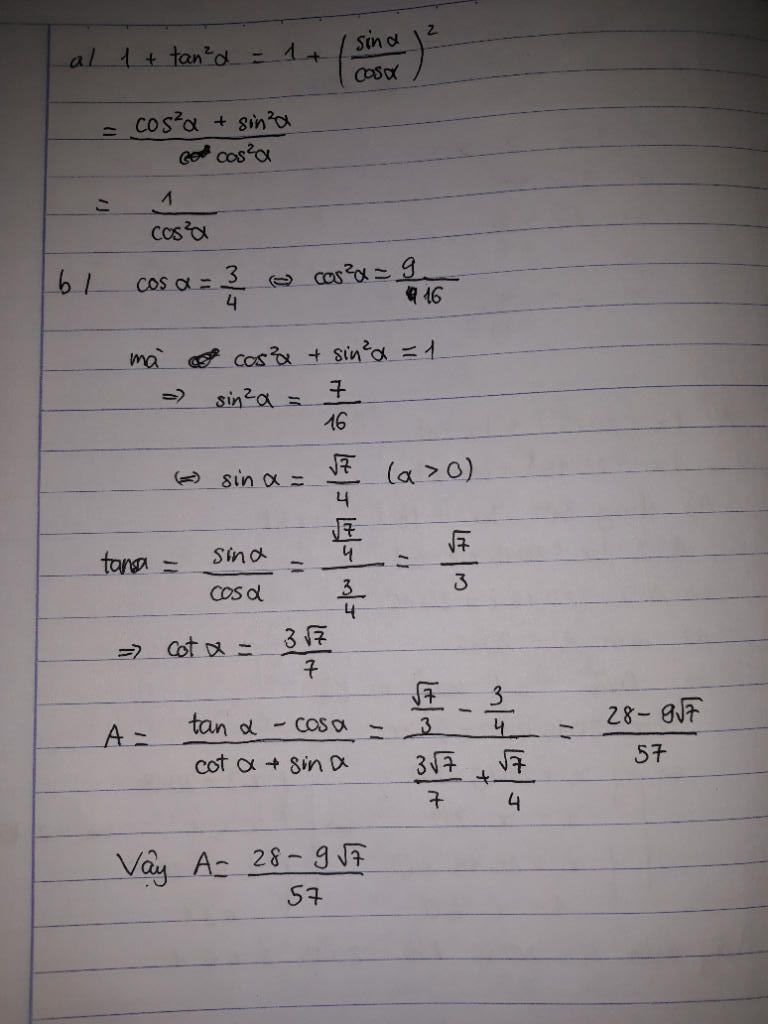 a/ 1 + tan²α = 1 + (sinα/cosα)²
= (cos²α + sin²α)/cos²α
= 1/cos²α
b/ cos α = 3/4 ⇔ cos²α = 9/16
mà cos²α + sin²α = 1
⇒ sin²α = 7/16
⇔ sin α = √7/4 (α > 0)
tanα = sinα/cosα = (√7/4)/(3/4) = √7/3
⇒ cot α = 3√7/7
A = (tan α - cosα)/(cot α + sin α) = (√7/3 - 3/4)/(3√7/7 + √7/4) = (28 - 9√7)/57
Vậy A = (28 - 9√7)/57